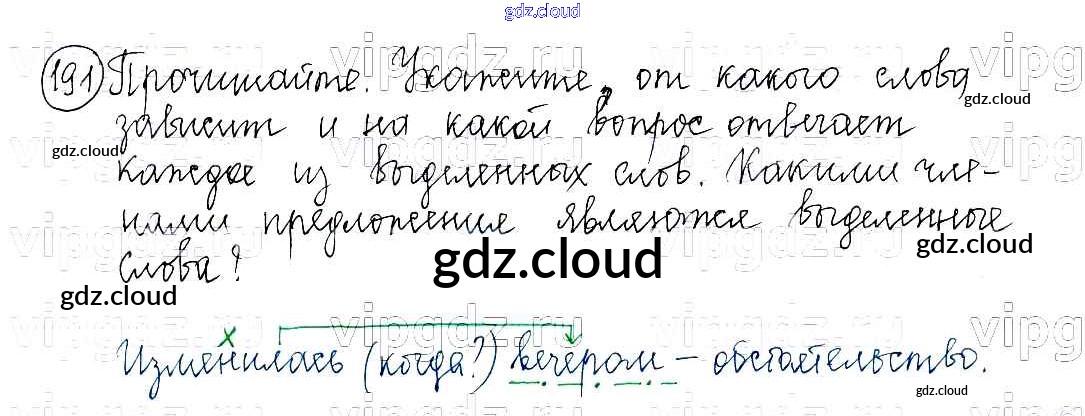 gdz.cloud
191 Прочитайте. Укажите, от какого слова
gdz.cloud
зависит и на какой вопрос отвечает
gdz.cloud
каждое из выделенных слов. Какими чле-
нами предложения являются выделенные
gdz.cloud
слова?
gdz.cloud
gdz.cloud
х
Изменилась (когда?) вечером – обстоятельство.
gdz.cloud